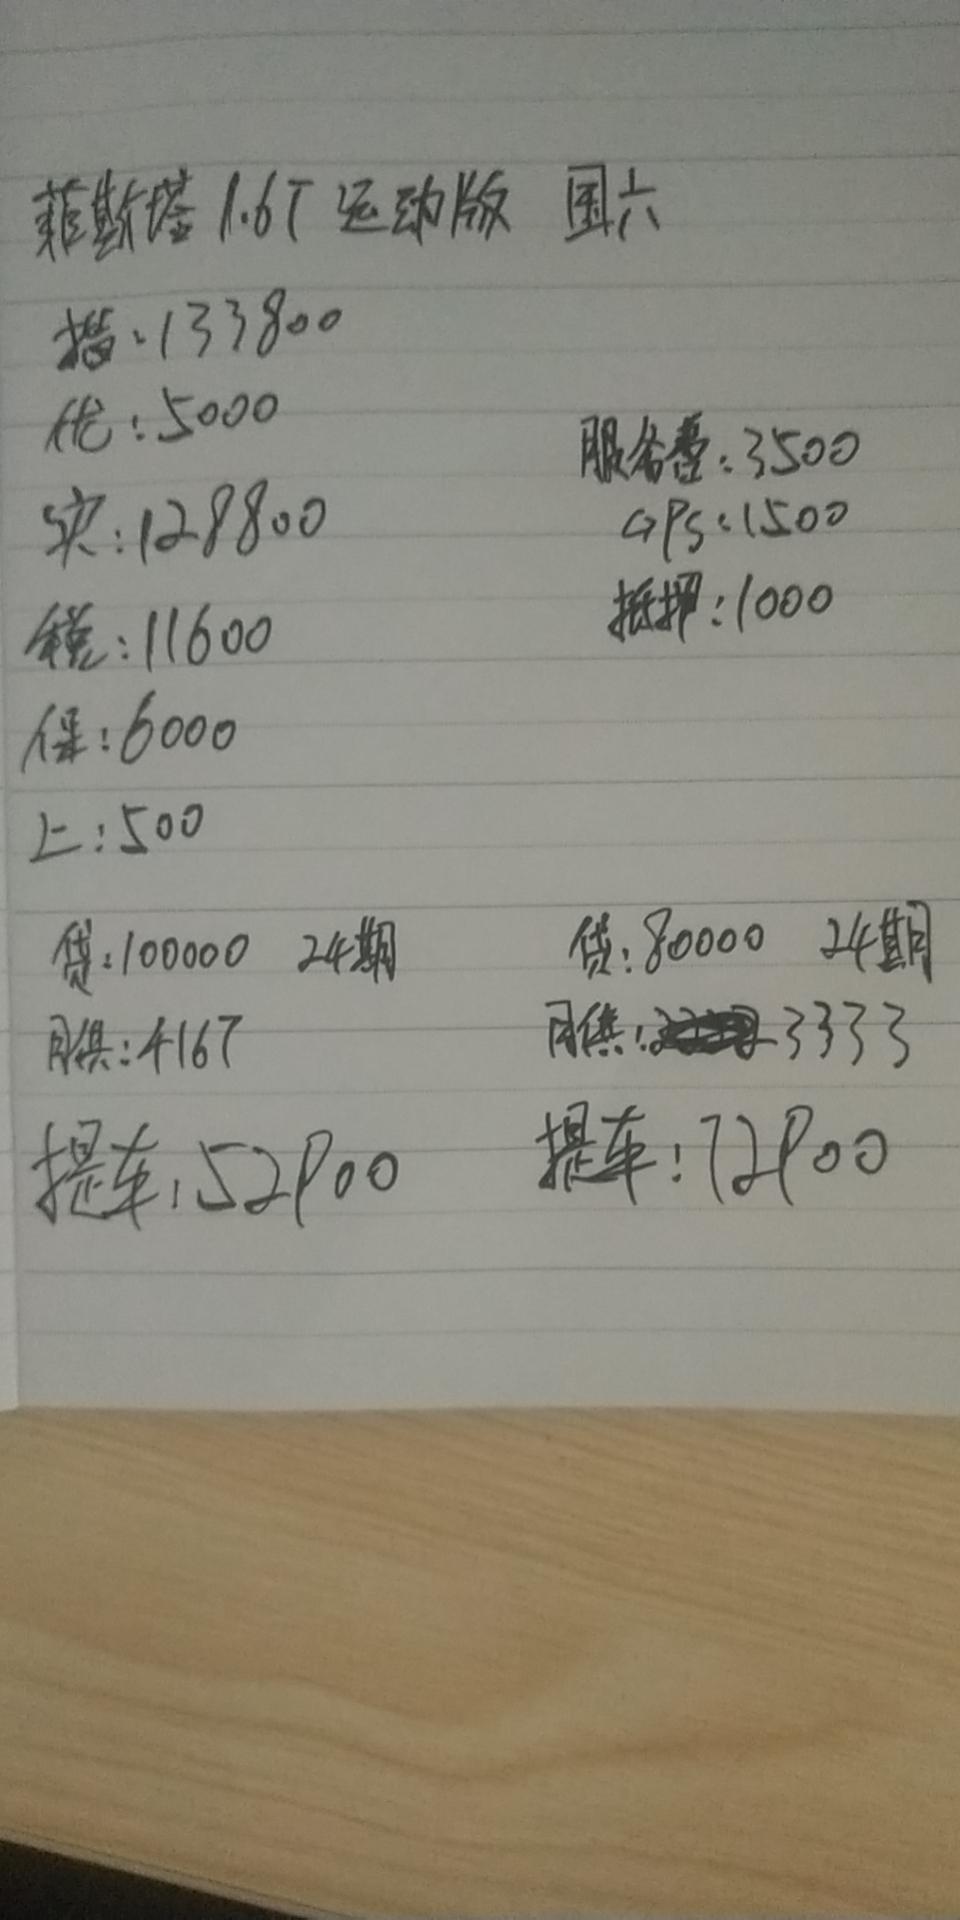 菲斯塔 1.6T 运动版 国六
指:133800
优:5000
实:128800
税:11600
保:6000
上:500
服务费:3500
GPS:1500
抵押:1000
贷:100000 24期
月供:4167
提车:52900
贷:80000 24期
月供:3333
提车:72900